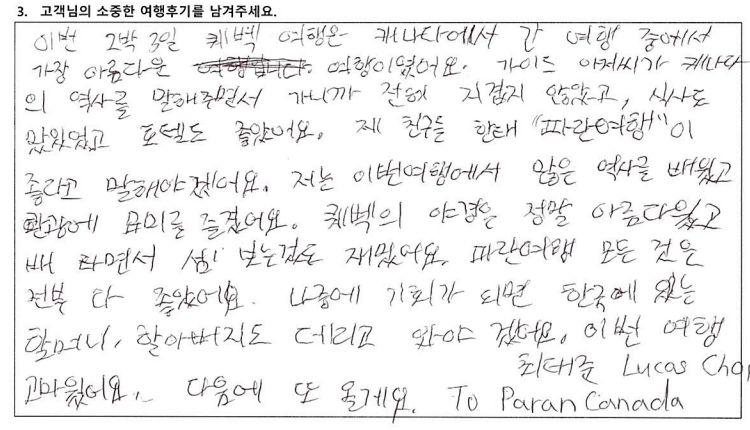 3. 고객님의 소중한 여행후기를 남겨주세요.
이번 2박 3일 퀘벡 여행은 캐나다에서 간 여행 중에서
가장 아름다운 여행이었어요. 가이드 아저씨가 캐나다
의 역사를 말해주면서 가니까 전혀 지겹지 않았고, 식사도
맜있었고 호텔도 좋았어요. 제 친구들 한태 "파란여행"이
좋라고 말해야겠어요. 저는 이번여행에서 많은 역사를 배웠고
관광에 묘미를 즐겼어요. 퀘벡의 야경은 정말 아름다웠고
배 타면서 섬 보는것도 재밌어요. 파란여행 모든 것은
전부 다 좋았어요. 나중에 기회가 되면 한국에 있는
할머니, 할아버지도 데리고 와야 겠어요. 이번 여행
최태준 Lucas Choi
고마웠어요. 다음에 또 올게요. To Paran Canada